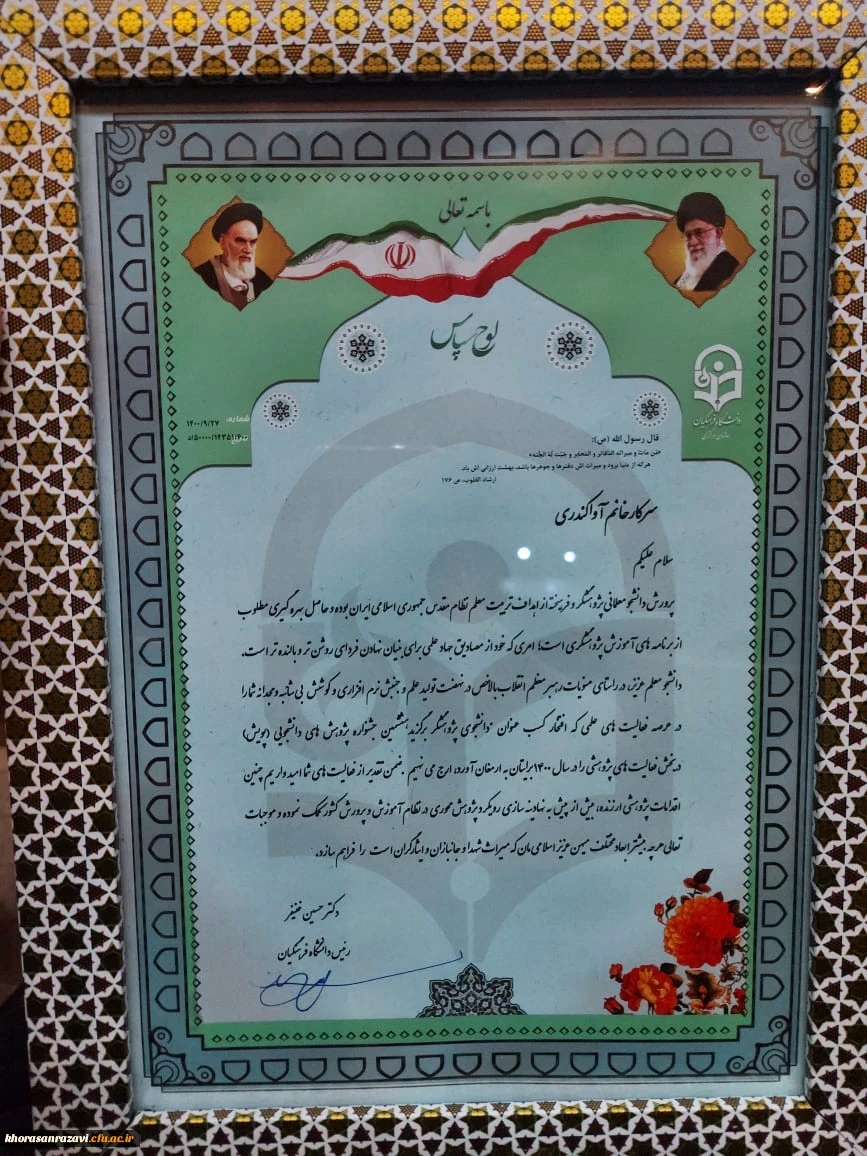 باسمه تعالی
لوح سپاس
دانشگاه فرهنگیان
سازمان مرکزی
شماره:
۱۴۰۰/۹/۲۷
قال رسول الله (ص):
مَن ماتَ و میراثه الدَّفاتر و المَحابر وَ جَبَت لَهُ الجَنَّه»
هرکه از دنیا برود و میراث اش دفترها و جوهرها باشد، بهشت ارزانی اش باد.
ارشاد القلوب، ص ۱۷۶
سرکار خانم آوا کندری
سلام علیکم
پرورش دانشجو معلمانی پژوهشگر و فریخته از اهداف تربیت معلم نظام مقدس جمهوری اسلامی ایران بوده و حاصل بهره گیری مطلوب
از برنامه های آموزش پژوهشگری است؛ امری که خود از مصادیق جهاد علمی برای بنیان نهادن فردای روشن تر و بالنده تر است.
دانشجو معلم عزیز، در راستای منویات رهبر معظم انقلاب بالاخص در نهضت تولید علم و جنبش نرم افزاری و کوشش بی شائبه و مجدانه شما را
در عرصه فعالیت های علمی که افتخار کسب عنوان "دانشجوی پژوهشگر برگزیده هشتمین جشنواره پژوهش های دانشجویی (پویش)
در بخش فعالیت های پژوهشی را در سال ۱۴۰۰ برایتان به ارمغان آورد، ارج می نهیم. ضمن تقدیر از فعالیت های شما امید واریم چنین
اقدامات پژوهشی ارزنده، بیش از پیش به نهادینه سازی رویکرد پژوهش محوری در نظام آموزش و پرورش کشور کمک نموده و موجبات
تعالی هرچه بیشتر ابعاد مختلف میهن عزیز اسلامی مان که میراث شهدا و جانبازان و ایثارگران است را فراهم سازد.
دکتر حسین خنیفر
رئیس دانشگاه فرهنگیان
khorasanrazavi.cfu.ac.ir